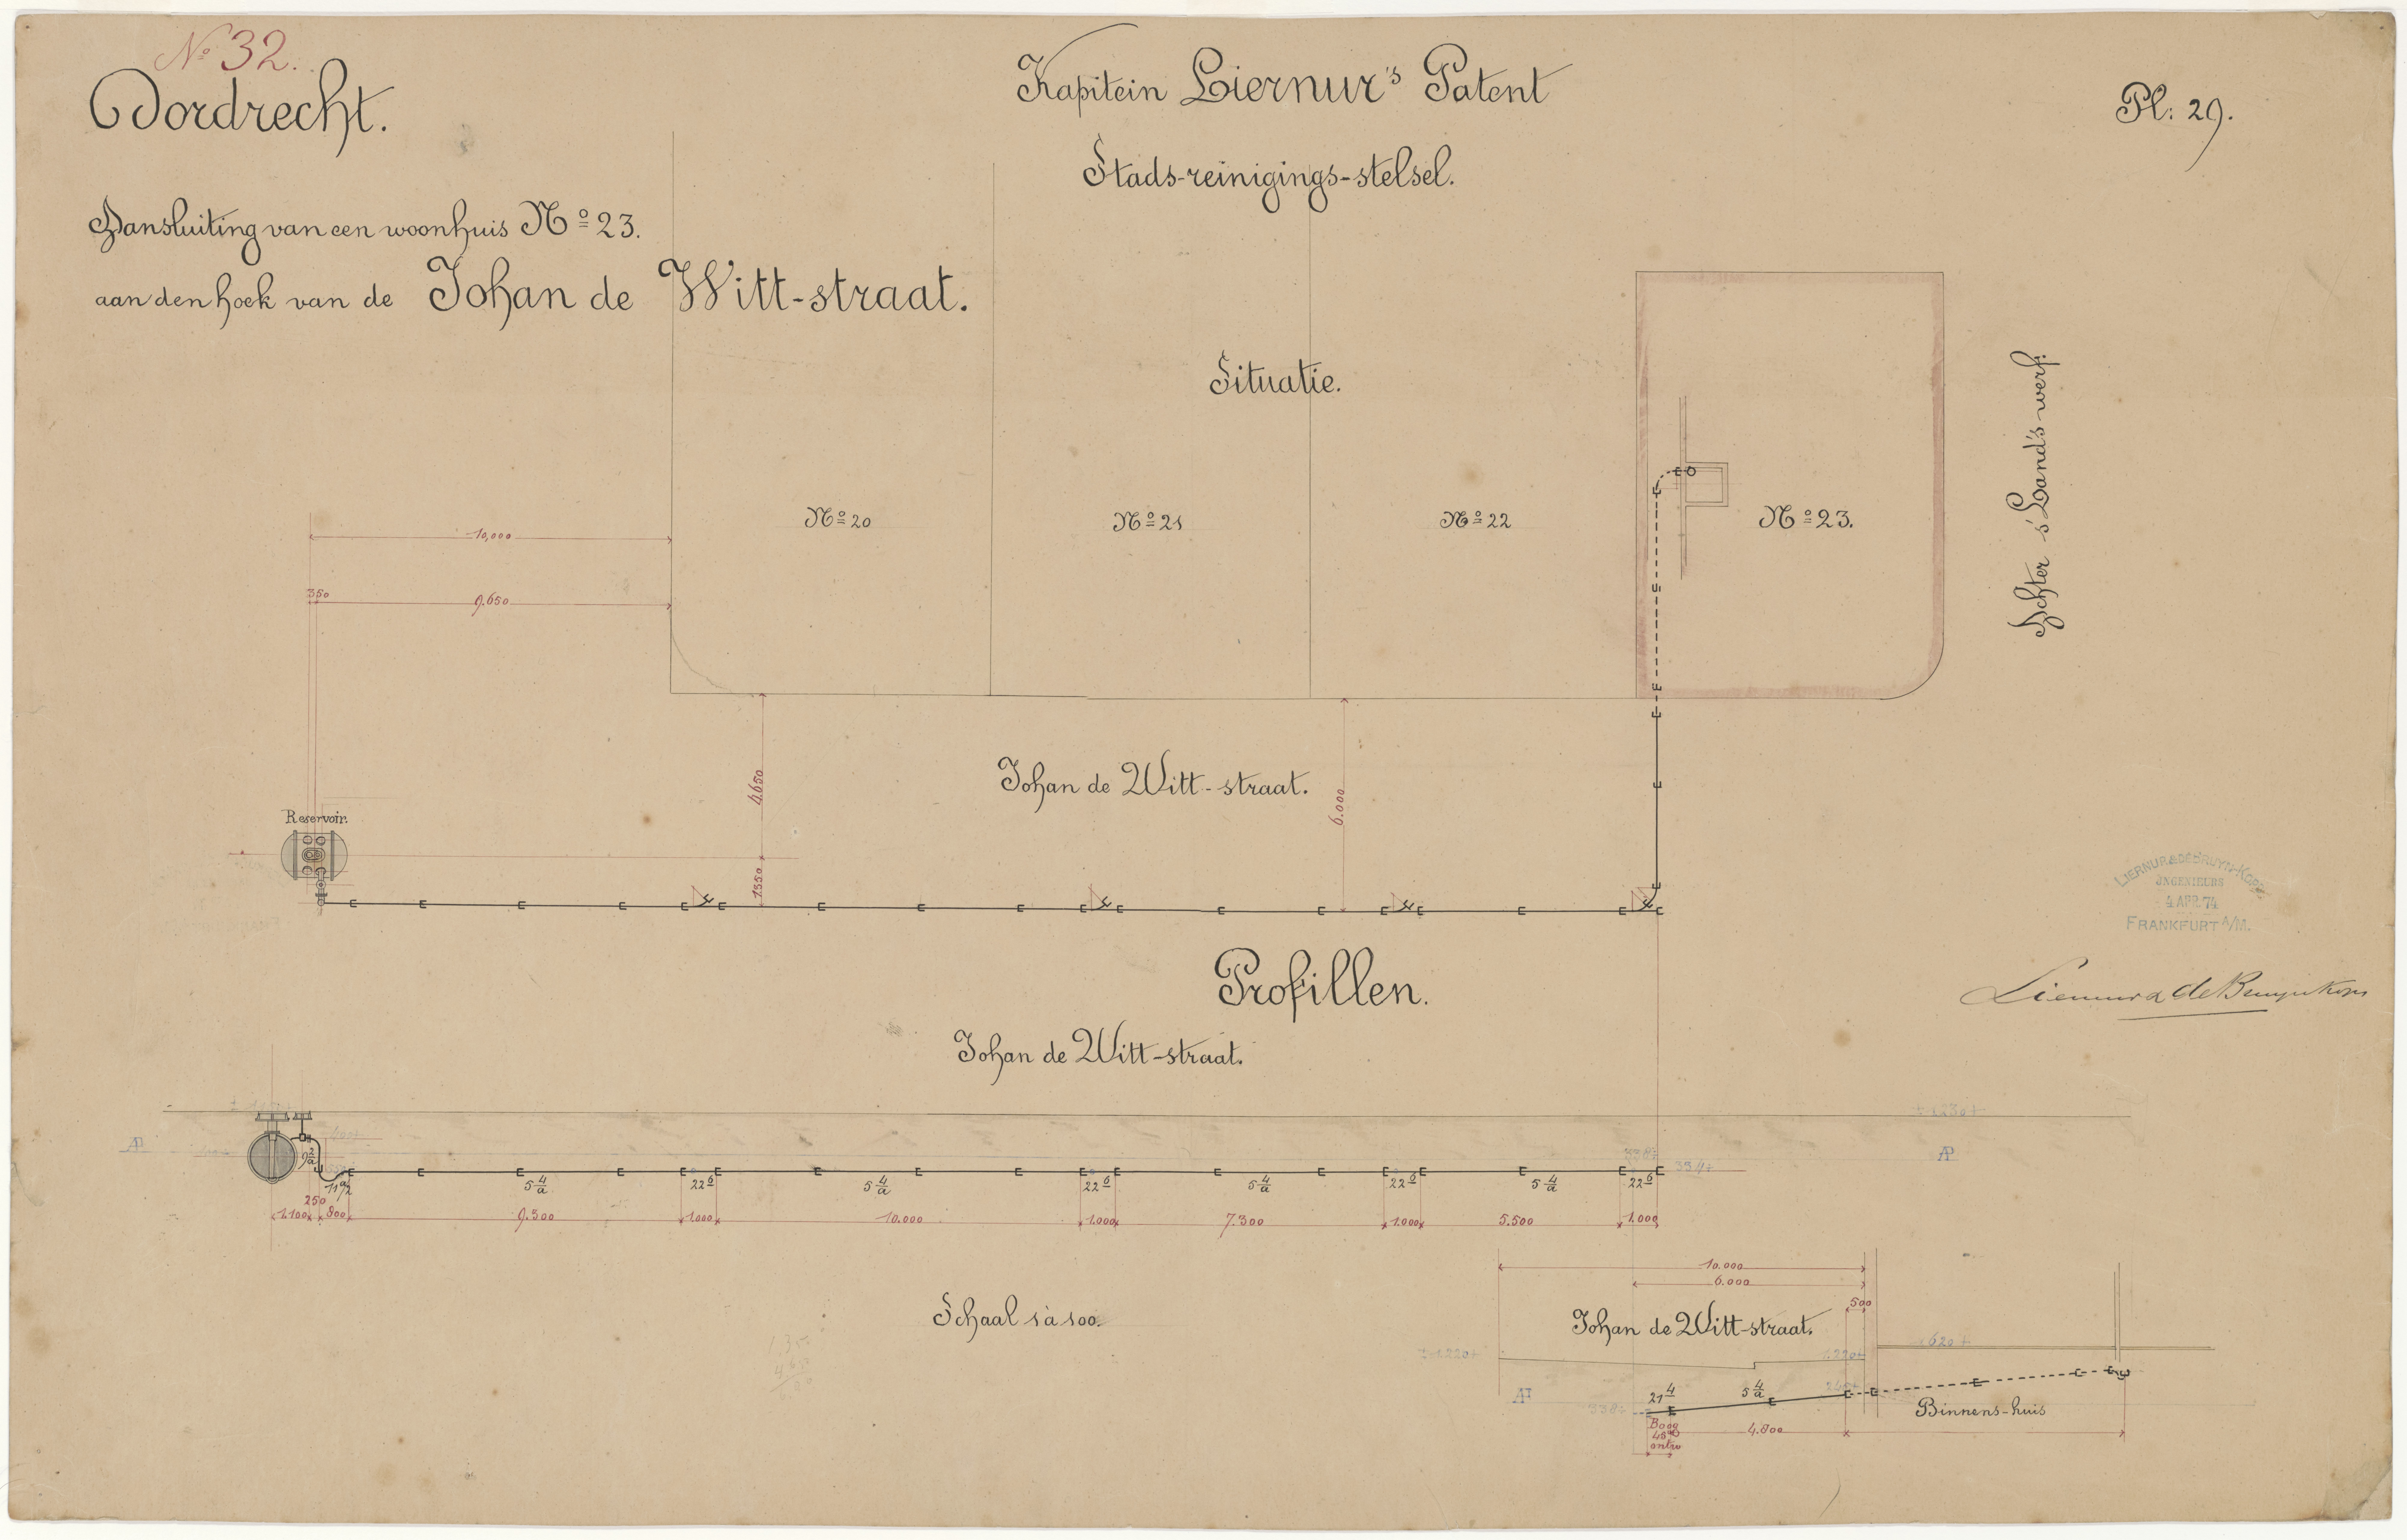 No 32.
Dordrecht.
Kapitein Liernur's Patent
Pl: 29.
Stads-reinigings-stelsel.
Aansluiting van een woonhuis No 23.
aan den hoek van de Johan de Witt-straat.
Situatie.
Achter 's Land's werf.
No 20
No 21
No 22
No 23.
10,000
350
9.650
4.650
6.000
1350
Johan de Witt-straat.
Reservoir.
LIERNUR & DE BRUYN-KOPS
INGENIEURS
4 APR. 74
FRANKFURT A/M.
Profillen.
Liernur & de Bruyn Kops
Johan de Witt-straat.
± 1230+
AP
AP
5 4/a
22 6
5 4/a
22 6
5 4/a
22 6
5 4/a
22 6
250
1.100
800
9.300
1.000
10.000
1.000
7.300
1.000
5.500
1.000
10.000
6.000
500
Schaal 1 à 100.
Johan de Witt-straat.
620+
± 1.220+
1.220+
AP
21 4
5 4/a
338+
Binnens-huis
Boog
4.800